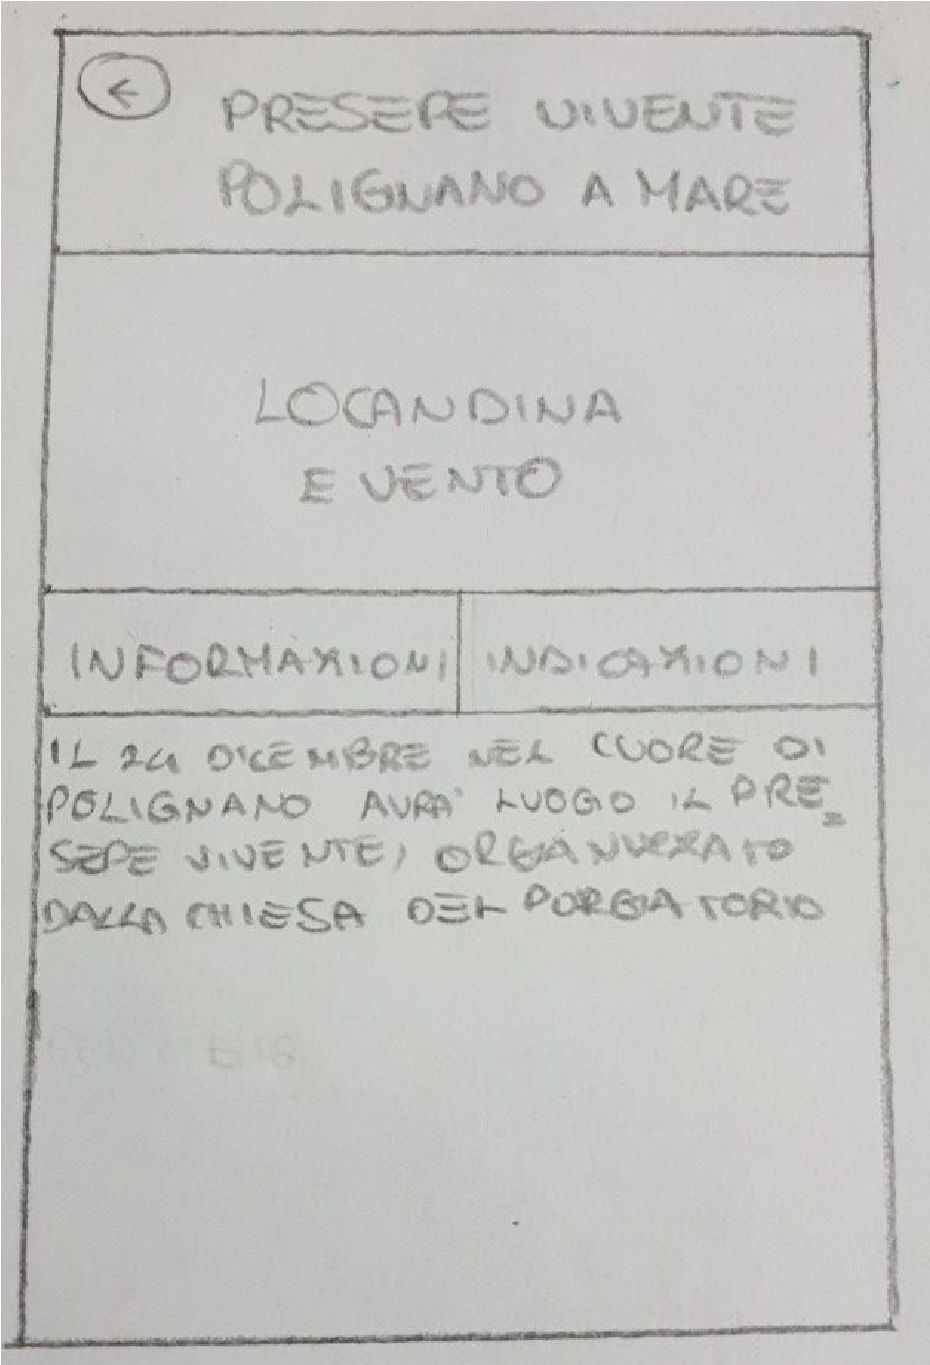 ←
PRESEPE VIVENTE
POLIGNANO A MARE
LOCANDINA
EVENTO
INFORMAZIONI
INDICAZIONI
IL 24 DICEMBRE NEL CUORE DI
POLIGNANO AVRA' LUOGO IL PRE=
SEPE VIVENTE, ORGANIZZATO
DALLA CHIESA DEL PORGATORIO